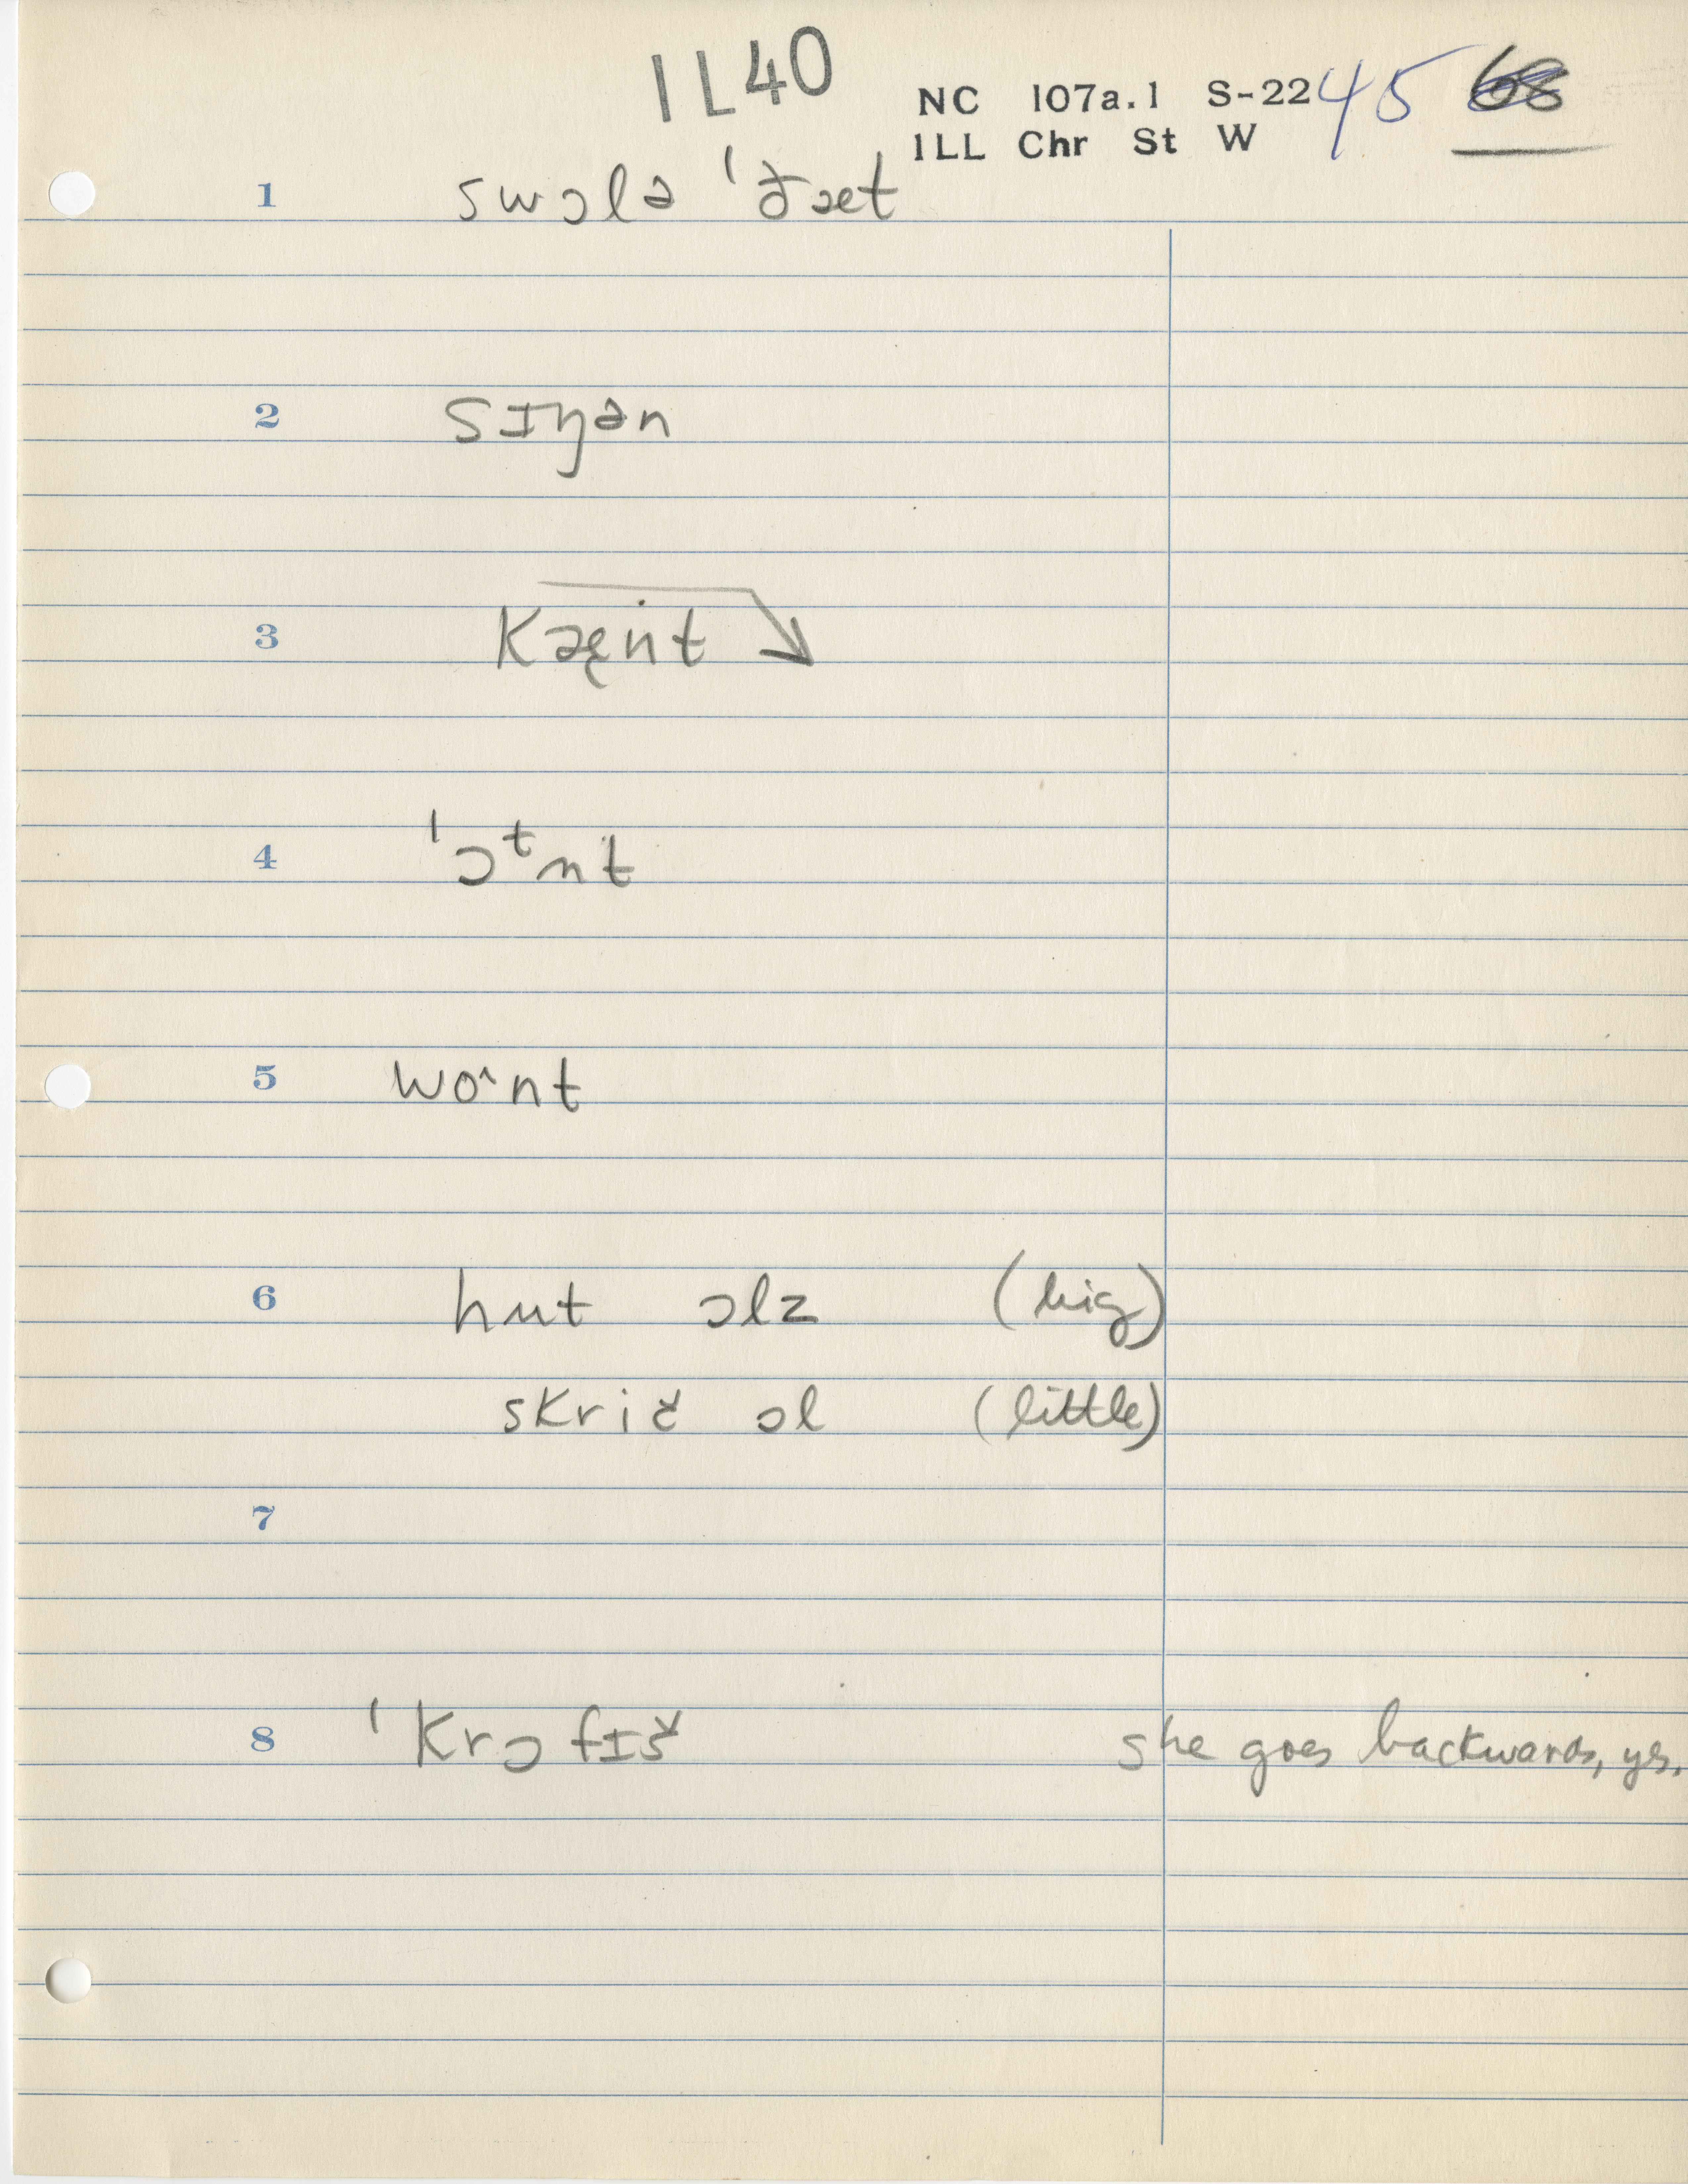 IL40
NC 107a.1 S-22 45
ILL Chr St W
1 swɔlə ˈðæt
2 sɪŋən
3 kæ̨ṅt
4 ˈɔᵗnt
5 wo^nt
6 hut ɔlz (big)
skrič ɔl (little)
7
8 ˈkrɔfɪš she goes backwards, yes.